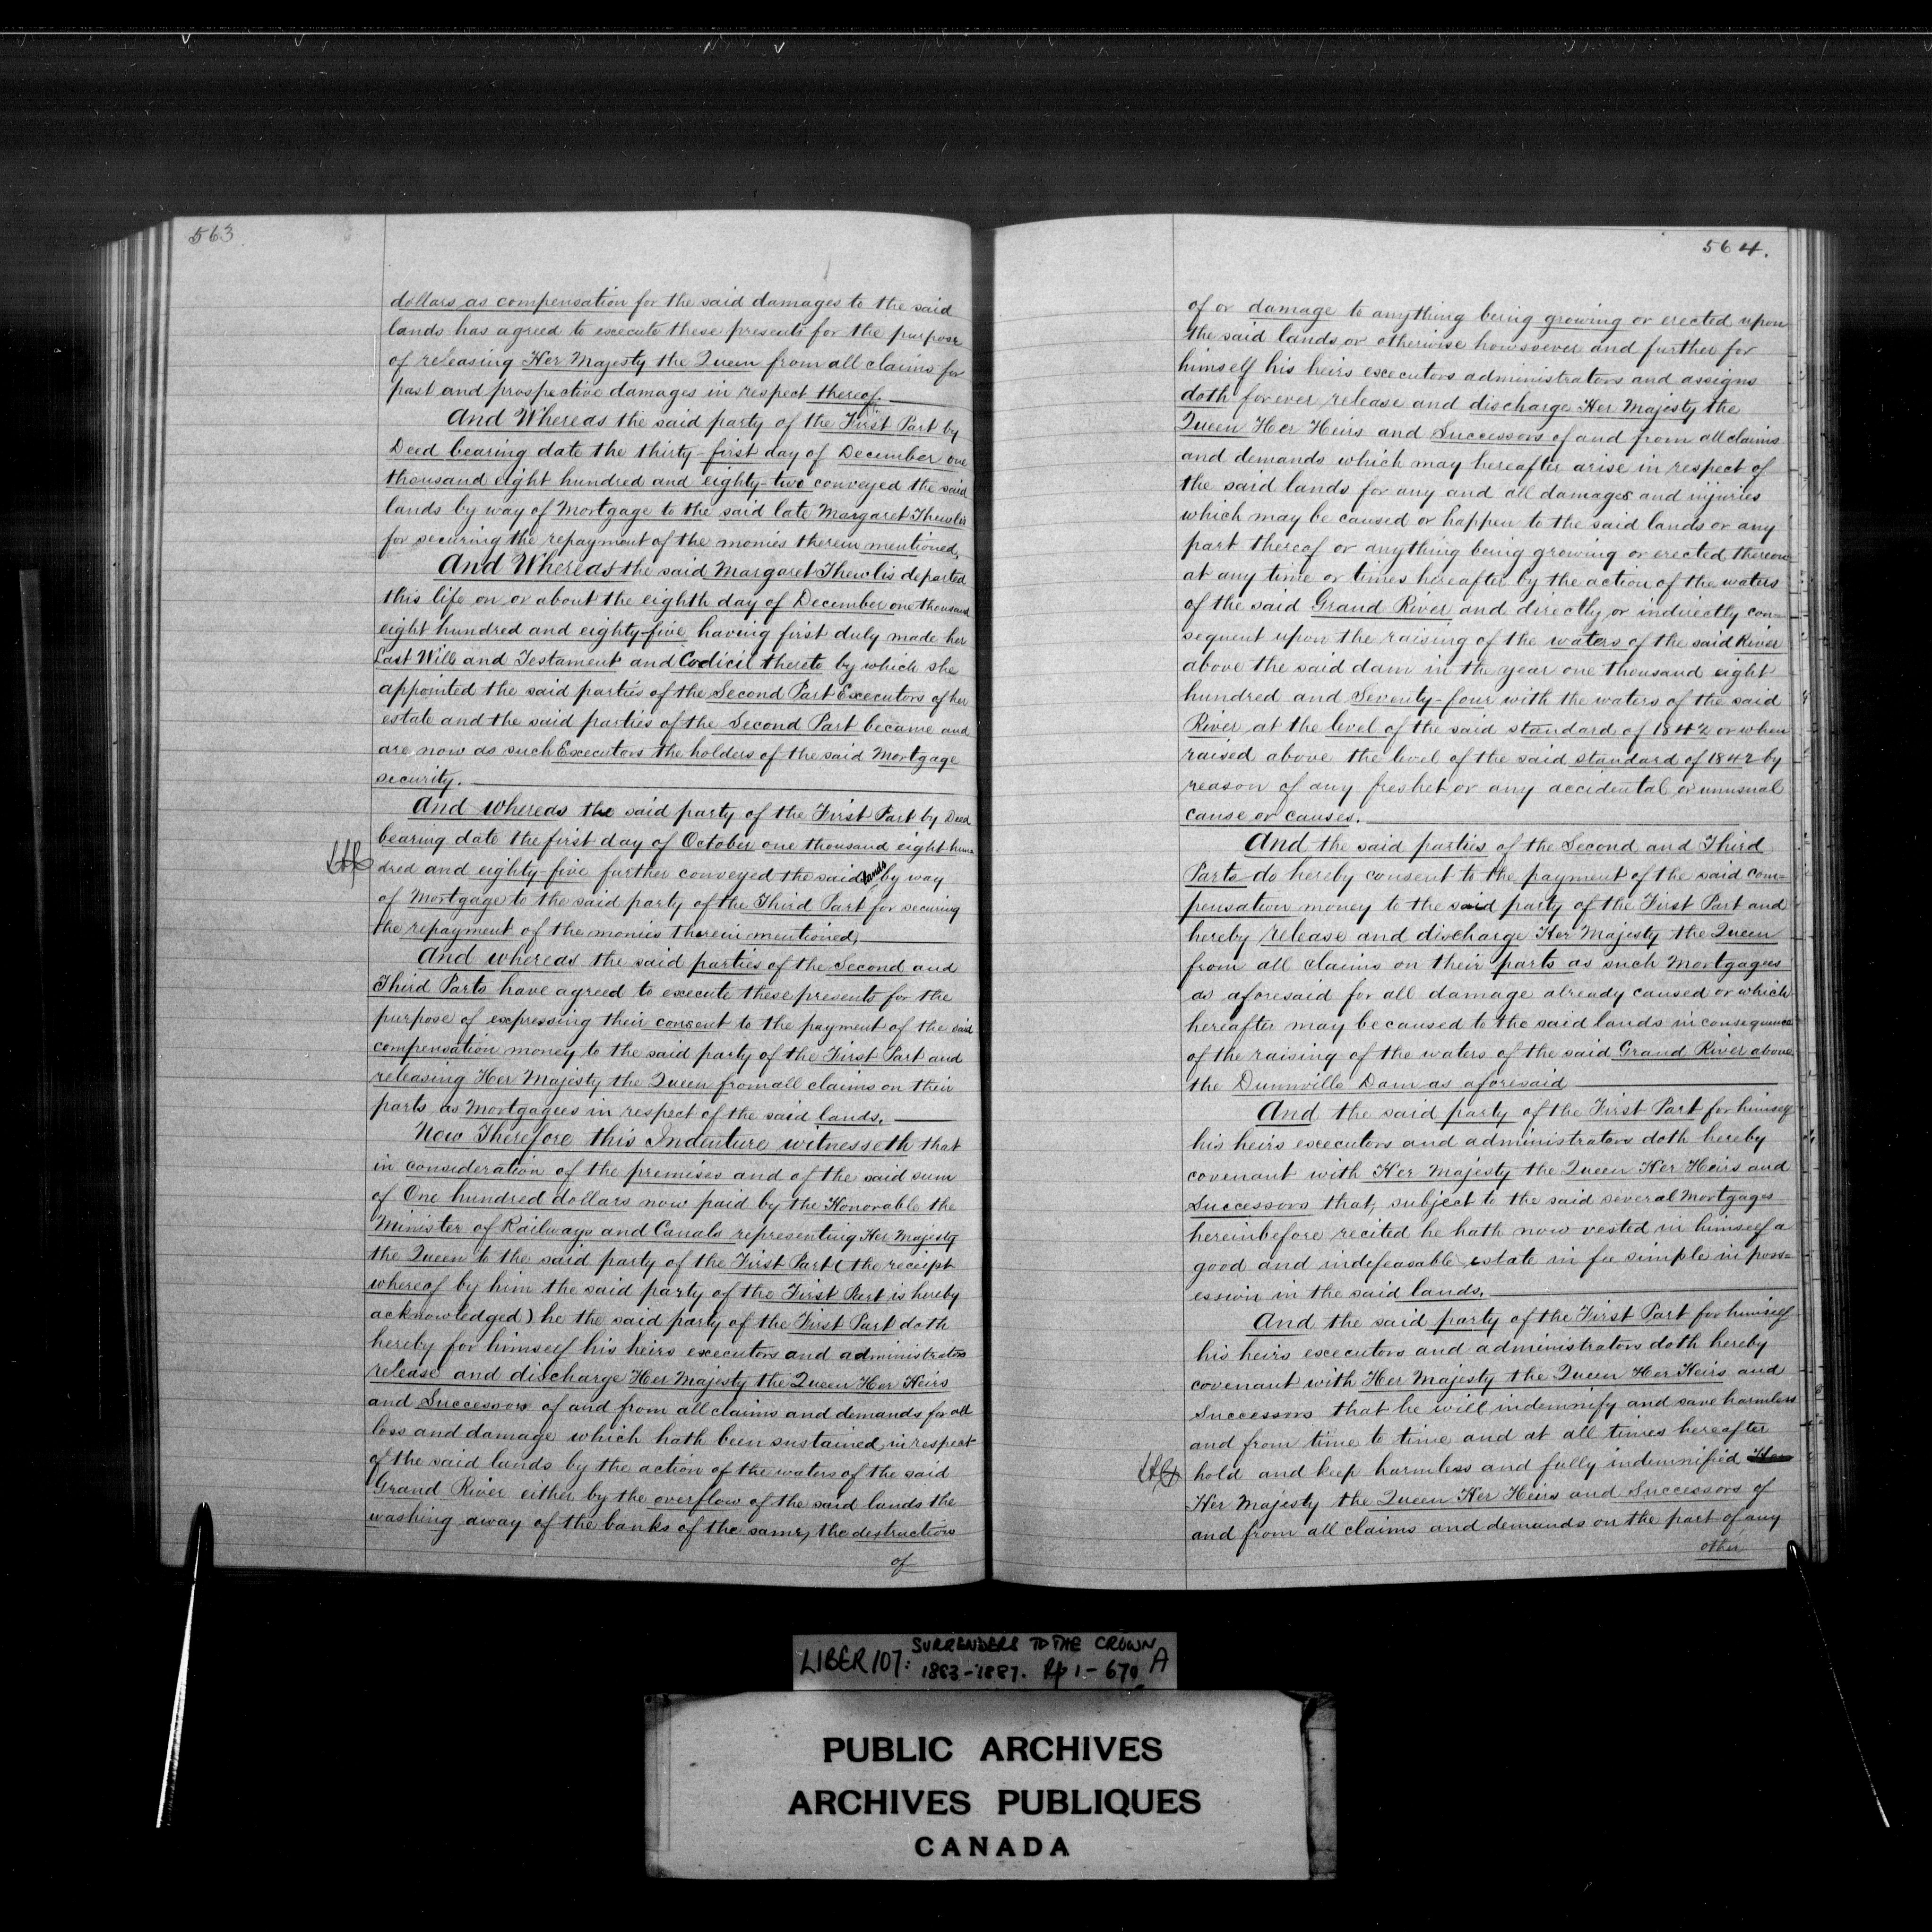 563
dollars as compensation for the said damages to the said
lands has agreed to execute these presents for the purpose
of releasing Her Majesty the Queen from all claims for
past and prospective damages in respect thereof.
And Whereas the said party of the First Part by
Deed bearing date the thirty-first day of December one
thousand eight hundred and eighty-two conveyed the said
lands by way of Mortgage to the said late Margaret Thewlis
for securing the repayment of the monies therein mentioned.
And Whereas the said Margaret Thewlis departed
this life on or about the eighth day of December one thousand
eight hundred and eighty-five having first duly made her
Last Will and Testament and Codicil thereto by which she
appointed the said parties of the Second Part Executors of her
estate and the said parties of the Second Part became and
are now as such Executors the holders of the said Mortgage
security.
And whereas the said party of the First Part by Deed
bearing date the first day of October one thousand eight hun
dred and eighty-five further conveyed the said lands by way
of Mortgage to the said party of the Third Part for securing
the repayment of the monies therein mentioned.
And whereas the said parties of the Second and
Third Parts have agreed to execute these presents for the
purpose of expressing their consent to the payment of the said
compensation money to the said party of the First Part and
releasing Her Majesty the Queen from all claims on their
parts as Mortgagees in respect of the said lands.
Now Therefore this Indenture witnesseth that
in consideration of the premises and of the said sum
of One hundred dollars now paid by the Honorable the
Minister of Railways and Canals representing Her Majesty
the Queen to the said party of the First Part (the receipt
whereof by him the said party of the First Part is hereby
acknowledged) he the said party of the First Part doth
hereby for himself his heirs executors and administrators
release and discharge Her Majesty the Queen Her Heirs
and Successors of and from all claims and demands for all
loss and damage which hath been sustained in respect
of the said lands by the action of the waters of the said
Grand River either by the overflow of the said lands the
washing away of the banks of the same, the destruction
of
564.
of or damage to anything being growing or erected upon
the said lands or otherwise howsoever and further for
himself his heirs executors administrators and assigns
doth for ever release and discharge Her Majesty the
Queen Her Heirs and Successors of and from all claims
and demands which may hereafter arise in respect of
the said lands for any and all damages and injuries
which may be caused or happen to the said lands or any
part thereof or anything being growing or erected thereon
at any time or times hereafter by the action of the waters
of the said Grand River and directly or indirectly con=
sequent upon the raising of the waters of the said River
above the said dam in the year one thousand eight
hundred and Seventy-four with the waters of the said
River at the level of the said standard of 1842 or when
raised above the level of the said standard of 1842 by
reason of any freshet or any accidental or unusual
cause or causes.
And the said parties of the Second and Third
Parts do hereby consent to the payment of the said com=
pensation money to the said party of the First Part and
hereby release and discharge Her Majesty the Queen
from all claims on their parts as such Mortgagees
as aforesaid for all damage already caused or which
hereafter may be caused to the said lands in consequence
of the raising of the waters of the said Grand River above
the Dunnville Dam as aforesaid
And the said party of the First Part for himself
his heirs executors and administrators doth hereby
covenant with Her Majesty the Queen Her Heirs and
Successors that, subject to the said several Mortgages
hereinbefore recited he hath now vested in himself a
good and indefeasable estate in fee simple in poss=
ession in the said lands.
And the said party of the First Part for himself
his heirs executors and administrators doth hereby
covenant with Her Majesty the Queen Her Heirs and
Successors that he will indemnify and save harmless
and from time to time and at all times hereafter
hold and keep harmless and fully indemnified Her
Her Majesty the Queen Her Heirs and Successors of
and from all claims and demands on the part of any
other
LIBER 107: SURRENDERS TO THE CROWN A
1883-1887. Pp 1-670
PUBLIC ARCHIVES
ARCHIVES PUBLIQUES
CANADA